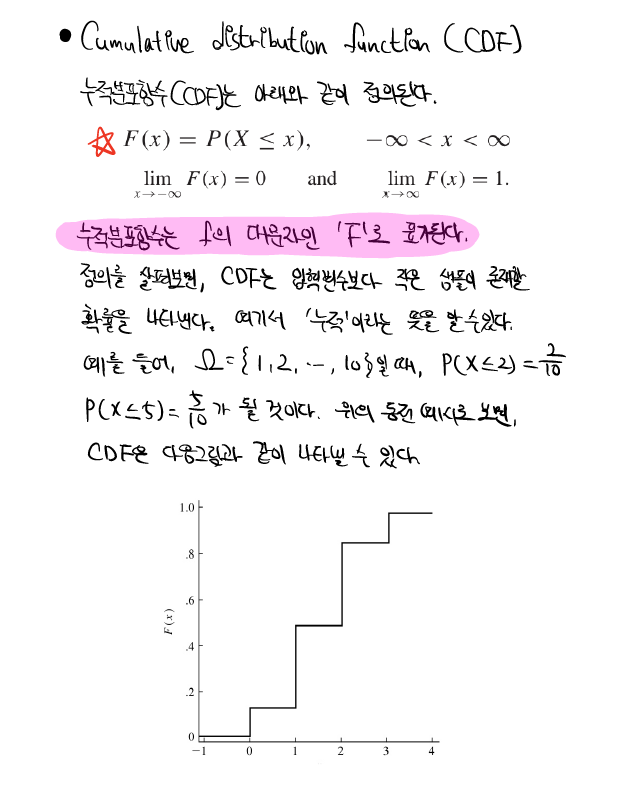 • Cumulative distribution function (CDF)
누적분포함수(CDF)는 아래와 같이 정의된다.
☆ F(x) = P(X ≤ x), −∞ < x < ∞
lim x→−∞ F(x) = 0 and lim x→∞ F(x) = 1.
누적분포함수는 f의 대문자인 'F'로 표기된다.
정의를 살펴보면, CDF는 입력변수보다 작은 샘플이 존재할
확률을 나타낸다. 여기서 '누적'이라는 뜻을 알 수 있다.
예를 들어, Ω={1,2,…,10}일 때, P(X≤2) = 2/10
P(X≤5) = 5/10 가 될 것이다. 위의 동전 예시로 보면,
CDF은 다음그림과 같이 나타낼 수 있다.
1.0
.8
.6
.4
.2
0
F(x)
−1 0 1 2 3 4